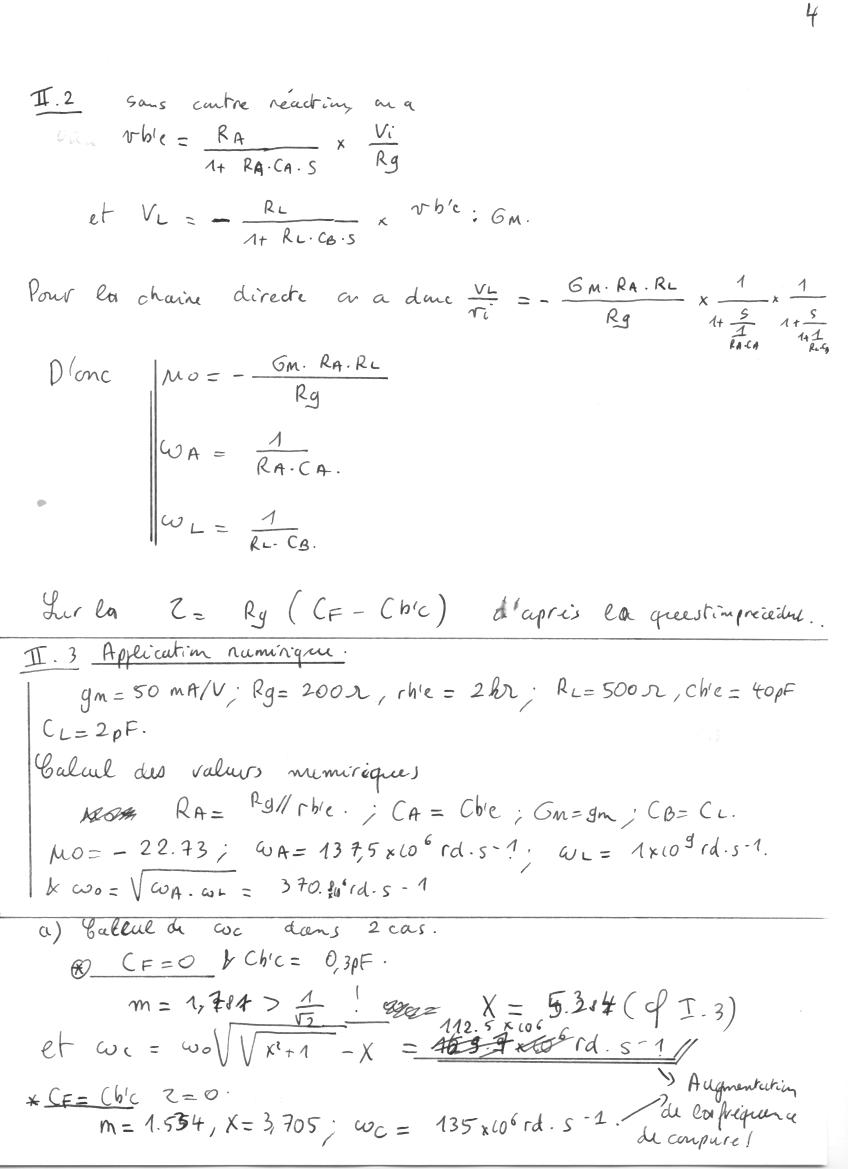 4
II.2 sans contre réaction, on a
vb'e = RA / (1 + RA·CA·S) × Vi / Rg
et VL = - RL / (1 + RL·CB·S) × vb'e · GM.
Pour la chaine directe on a donc VL/vi = - GM·RA·RL / Rg × 1 / (1 + S / (1 / RA·CA)) × 1 / (1 + S / (1+1 / RL·CB))
D'onc μ0 = - GM·RA·RL / Rg
ωA = 1 / RA·CA.
ωL = 1 / RL·CB.
Sur la τ = Rg (CF - Cb'c) d'après la question précédent..
II.3 Application numérique.
gm = 50 mA/V ; Rg = 200 Ω, rb'e = 2kΩ ; RL = 500 Ω, Cb'e = 40pF
CL = 2pF.
Calcul des valeurs numériques
RA = Rg // rb'e. ; CA = Cb'e ; GM = gm ; CB = CL.
μ0 = - 22.73 ; ωA = 137,5 × 10^6 rd.s-1 ; ωL = 1×10^9 rd.s-1.
& ω0 = √(ωA·ωL) = 370.10^6 rd.s-1
a) Calcul de ωc dans 2 cas.
⊛ CF = 0 & Cb'c = 0,3pF.
m = 1,781 > 1/√2 ! X = 5.344 (cf I.3)
et ωc = ω0 √(√(X²+1) - X) = 112.5 ×10^6 rd.s-1
↘ Augmentation
* CF = Cb'c τ = 0.
de la fréquence
m = 1.534, X = 3,705 ; ωc = 135×10^6 rd.s-1.
de coupure !